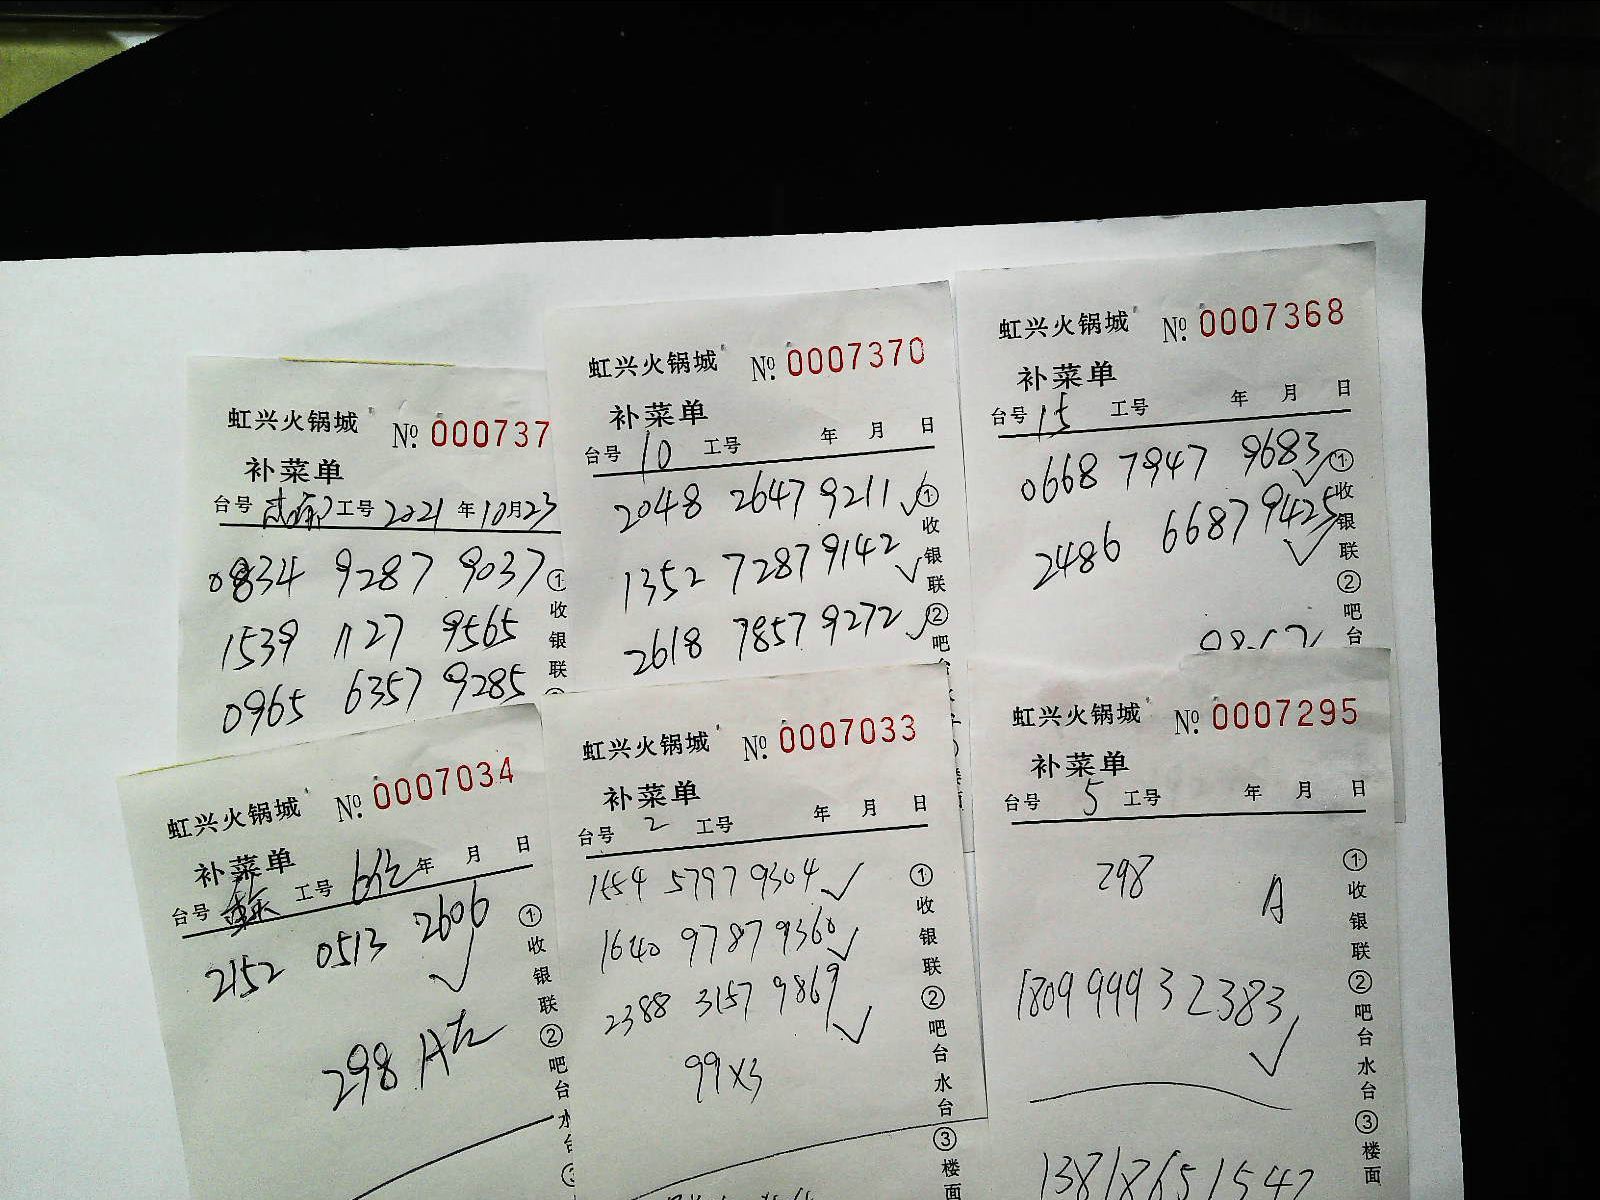 虹兴火锅城 No. 000737
补菜单
台号 工号 2021 年 10 月 23
0834 9287 9037
1539 1127 9565
0965 6357 9285
①收银联
虹兴火锅城 No. 0007370
补菜单
台号 10 工号 年 月 日
2048 2647 9211 ✓
1352 7287 9142 ✓
2618 7857 9272 ✓
①收银联②吧
虹兴火锅城 No. 0007368
补菜单
台号 15 工号 年 月 日
0668 7947 9683 ✓
2486 6687 9425 ✓
①收银联②吧台
虹兴火锅城 No. 0007034
补菜单
台号 工号 年 月 日
2152 0513 2606 ✓
298 A
①收银联②吧台水台
虹兴火锅城 No. 0007033
补菜单
台号 2 工号 年 月 日
1654 5797 9304 ✓
1640 9787 9360 ✓
2388 3157 9869 ✓
99×3
①收银联②吧台水台③楼面
虹兴火锅城 No. 0007295
补菜单
台号 5 工号 年 月 日
298 A
1809 999 32383 ✓
13818651547
①收银联②吧台水台③楼面